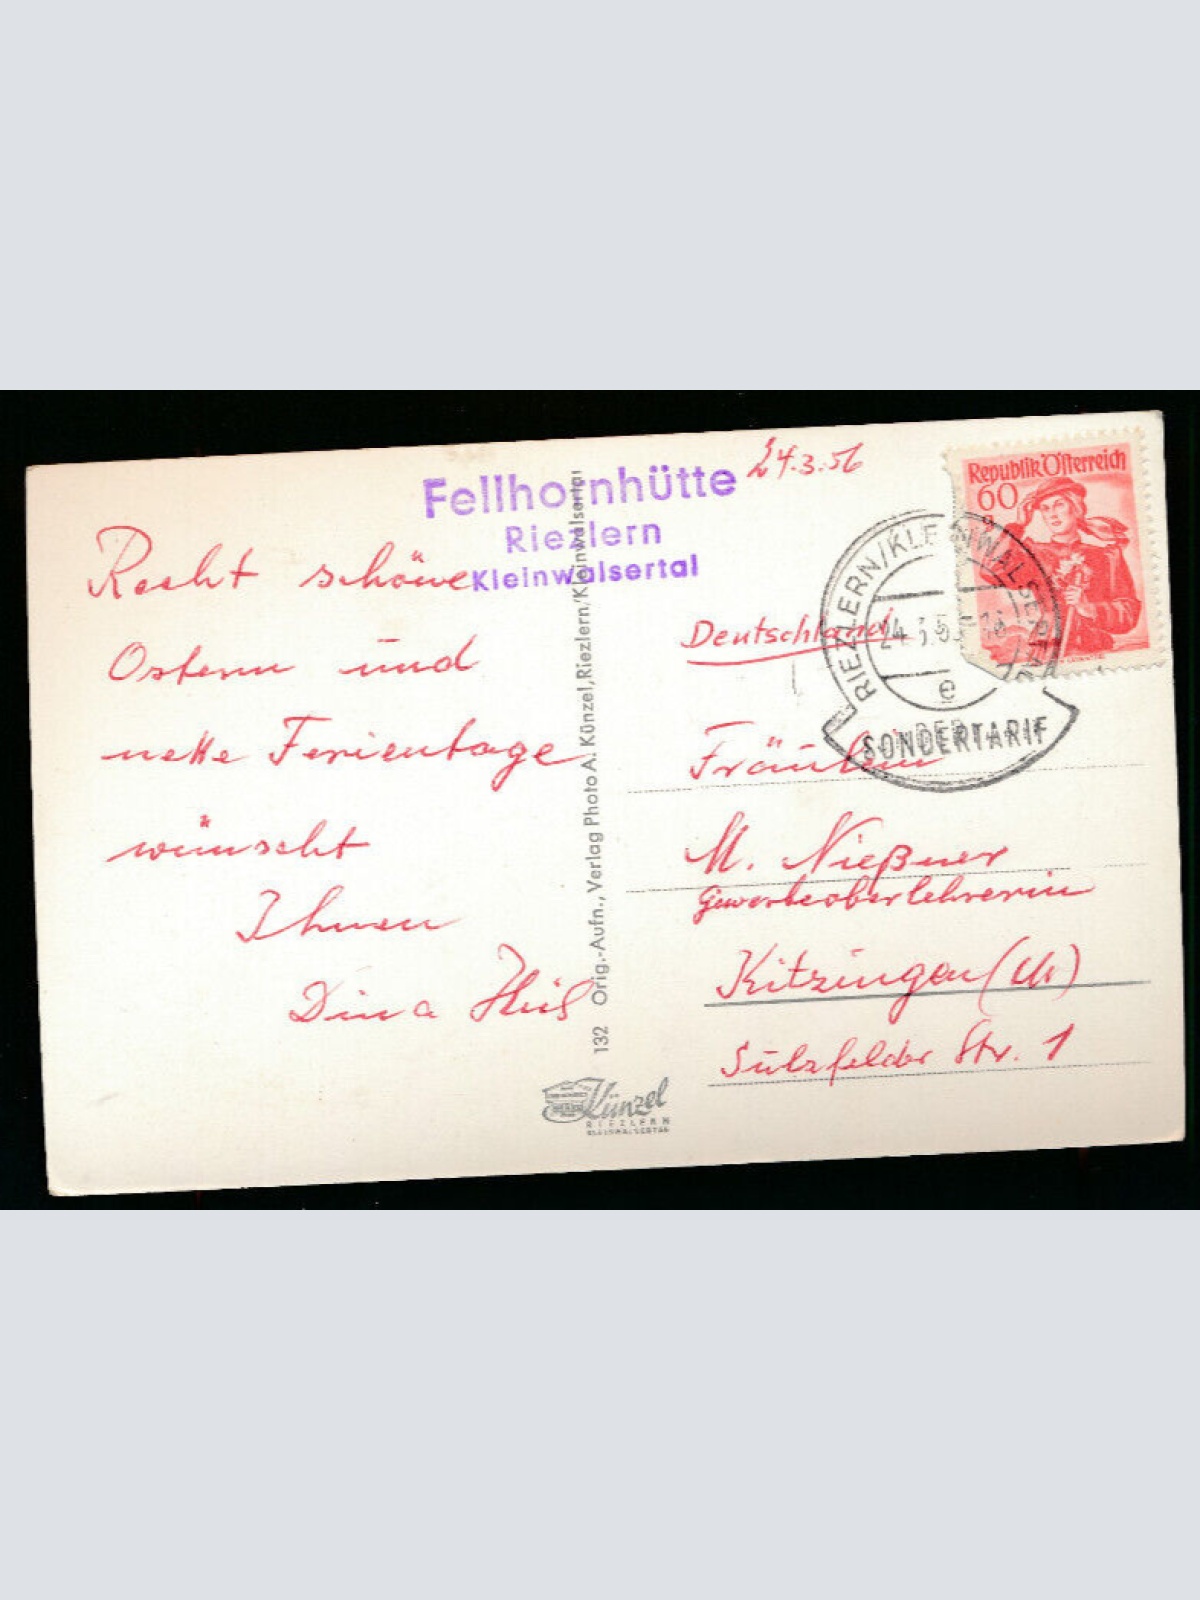 Fellhornhütte
Riezlern
Kleinwalsertal
24.3.56
Republik Österreich
60
RIEZLERN/KLEINWALSERTAL
24.3.5
e
SONDERTARIF
Recht schöne
Ostern und
nette Ferientage
wünscht
Ihnen
Dina
132 Orig.-Aufn., Verlag Photo A. Künzel, Riezlern/Kleinwalsertal
Deutschland
Fräulein
M. Nießner
Gewerbeoberlehrerin
Kitzingen (M)
Sulzfelder Str. 1
Künzel
RIEZLERN
KLEINWALSERTAL